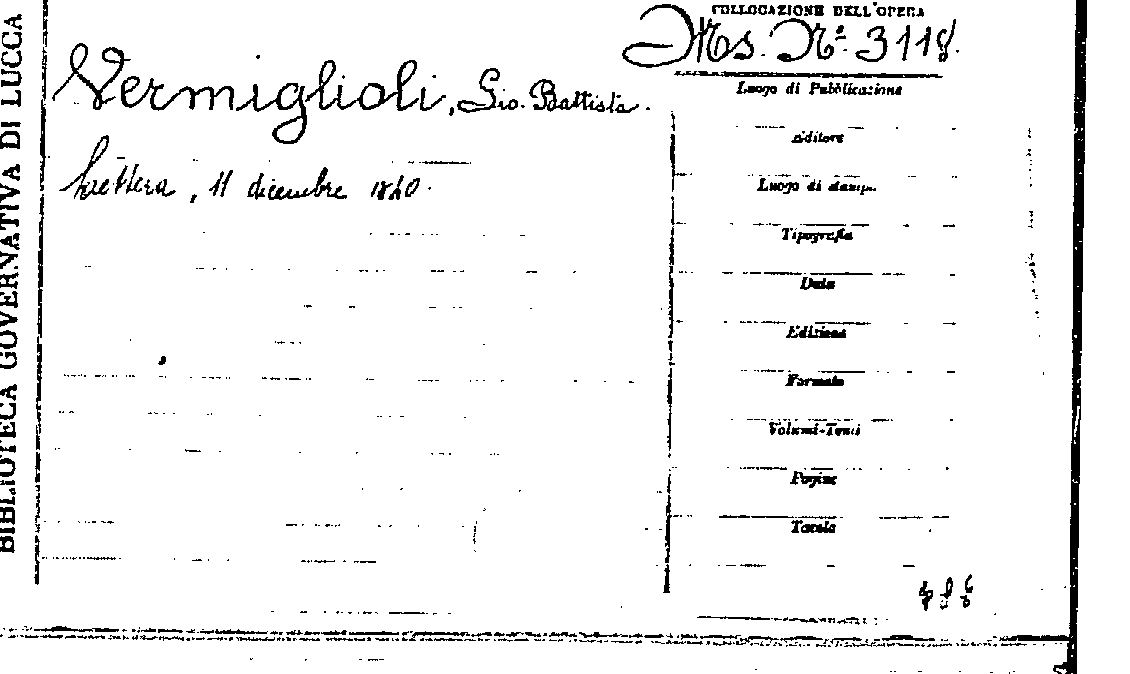 BIBLIOTECA GOVERNATIVA DI LUCCA
COLLOCAZIONE DELL'OPERA
Ms. Nº 3118.
Vermiglioli, Gio. Battista.
Lettera, 11 dicembre 1840.
Luogo di Pubblicazione
Editore
Luogo di stampa
Tipografia
Data
Edizione
Formato
Volumi-Tomi
Pagine
Tavole